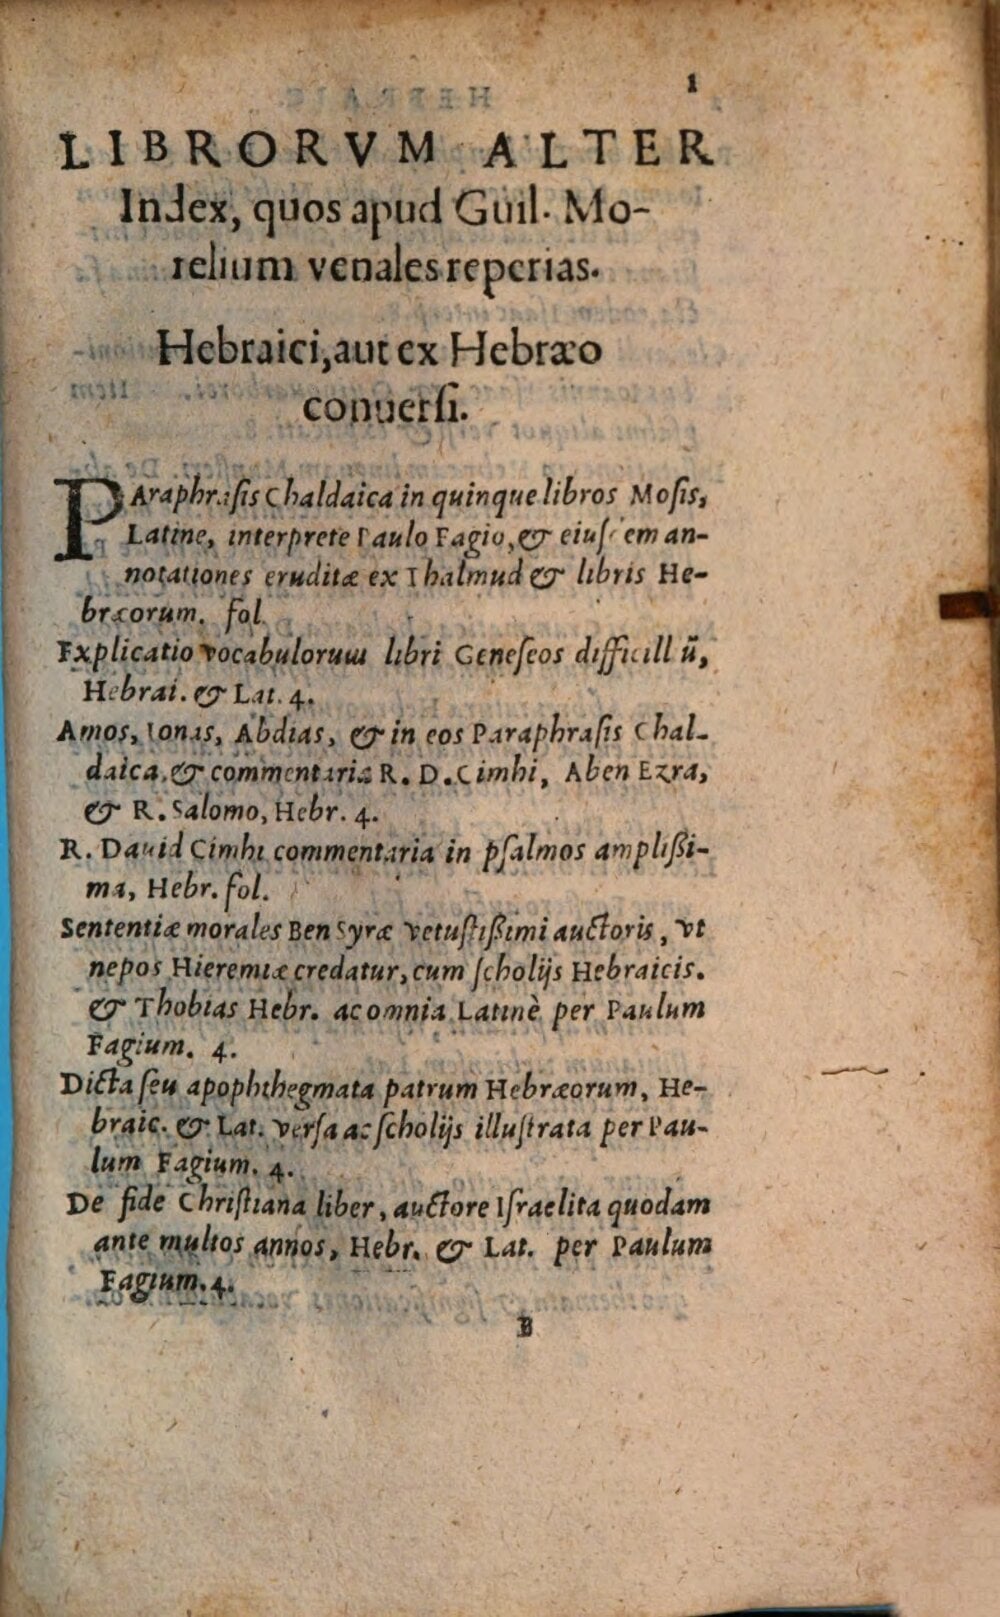 1
LIBRORVM ALTER
Index, quos apud Guil. Mo-
relium venales reperias.
Hebraici, aut ex Hebræo
conuerſi.
PAraphraſis Chaldaica in quinque libros Moſis,
Latine, interprete Paulo Fagio, & eiuſdem an-
notationes eruditæ ex Thalmud & libris He-
bræorum. fol.
Explicatio vocabulorum libri Geneſeos difficiliū,
Hebrai. & Lat. 4.
Amos, Ionas, Abdias, & in eos Paraphraſis Chal-
daica, & commentaria R. D. Cimhi, Aben Ezra,
& R. Salomo, Hebr. 4.
R. Dauid Cimhi commentaria in pſalmos ampliſſi-
ma, Hebr. fol.
Sententiæ morales Ben Syræ vetuſtiſſimi auctoris, vt
nepos Hieremiæ credatur, cum ſcholijs Hebraicis.
& Thobias Hebr. ac omnia Latinè per Paulum
Fagium. 4.
Dicta ſeu apophthegmata patrum Hebræorum, He-
braic. & Lat. verſa ac ſcholijs illuſtrata per Pau-
lum Fagium. 4.
De fide Chriſtiana liber, auctore Iſraelita quodam
ante multos annos, Hebr. & Lat. per Paulum
Fagium. 4.
B